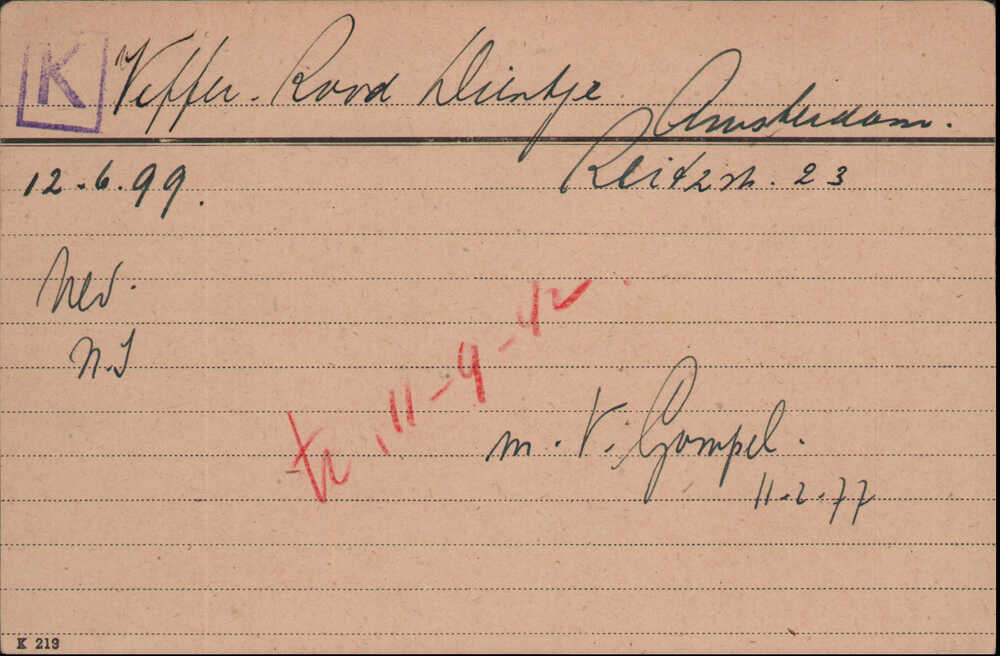 K Veffer-Rood Dientje
Amsterdam.
12.6.99. Reitzstr. 23
Ned.
N.I
tr. 11-9-42.
m. V. Gompel.
11-2-77
K 219